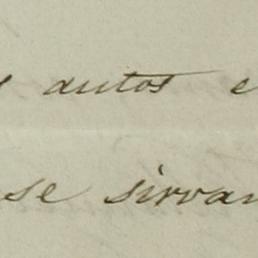 autos e
se sirvan